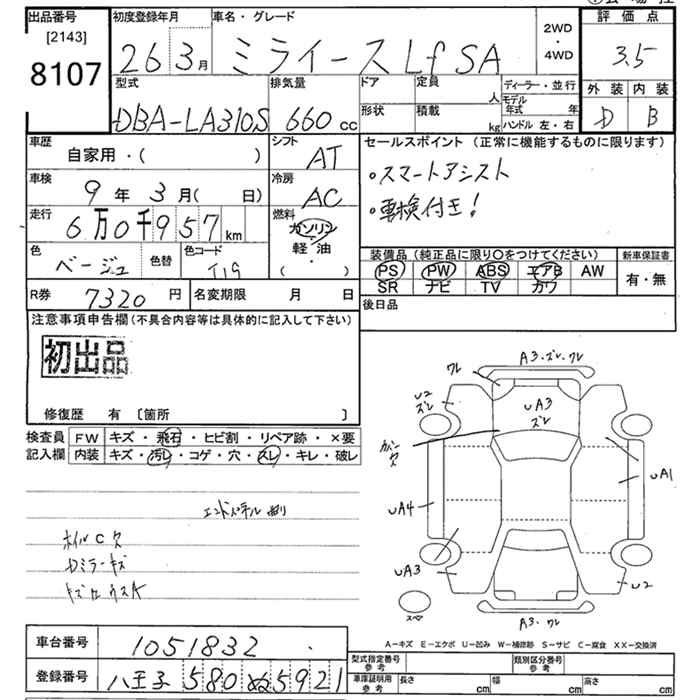 出品番号
[2143]
8107
初度登録年月
26 3月
車名・グレード
ミライース Lf SA
2WD
・
4WD
評価点
3.5
外装 内装
D B
型式
DBA-LA310S
排気量
660 cc
ドア
形状
定員
人
積載
kg
ディーラー・並行
モデル年式 年
ハンドル 左・右
車歴
自家用・( )
シフト
AT
車検
9年 3月( 日)
冷房
AC
走行
6万0千957 km
燃料
ガソリン
軽・油
( )
色
ベージュ
色替
色コード
T19
R券 7320円
名変期限 月 日
セールスポイント(正常に機能するものに限ります)
・スマートアシスト
・車検付き!
装備品(純正品に限り○をつけてください)
PS PW ABS エアB AW
SR ナビ TV カワ
新車保証書
有・無
後日品
注意事項申告欄(不具合内容等は具体的に記入して下さい)
初出品
修復歴 有 〔箇所 〕
検査員記入欄
FW キズ・飛石・ヒビ割・リペア跡・×要
内装 キズ・汚レ・コゲ・穴・スレ・キレ・破レ
エンドパネル曲り
ホイルC欠
Dミラーキズ
ワレ
A3・ズレ・ワレ
U2
ズレ
UA3
ズレ
UA1
UA4
UA3
U2
スペア
A3・ワレ
A-キズ E-エクボ U-凹み W-補修跡 S-サビ C-腐食 XX-交換済
車台番号 1051832
登録番号 八王子 580 ぬ 5921
型式指定番号
参考
類別区分番号
参考
車庫証明用
参考
長さ cm
幅 cm
高さ cm